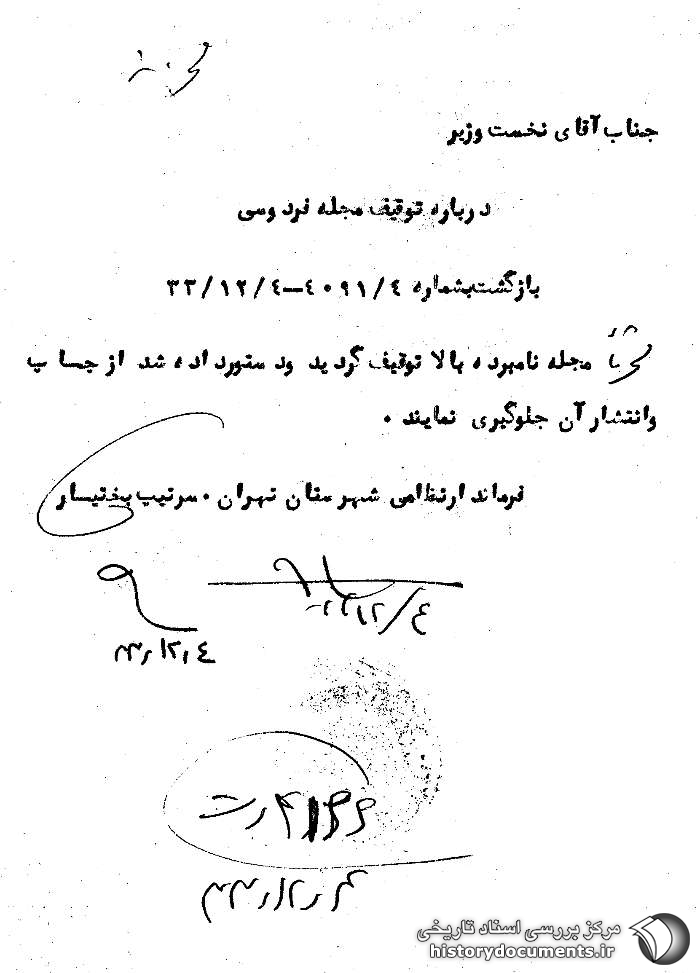 محرمانه
جناب آقای نخست وزیر
درباره توقیف مجله فردوسی
بازگشت بشماره ۴/۴۰۹۱–۳۳/۱۲/۴
محترماً مجله نامبرده بالا توقیف گردید و دستور داده شد از چاپ
وانتشار آن جلوگیری نمایند .
فرماندار نظامی شهرستان تهران . سرتیپ بختیار
۳۳/۱۲/۴
۳۳/۱۲/۴
۳۳/۱۲/۴
مرکز بررسی اسناد تاریخی
historydocuments.ir